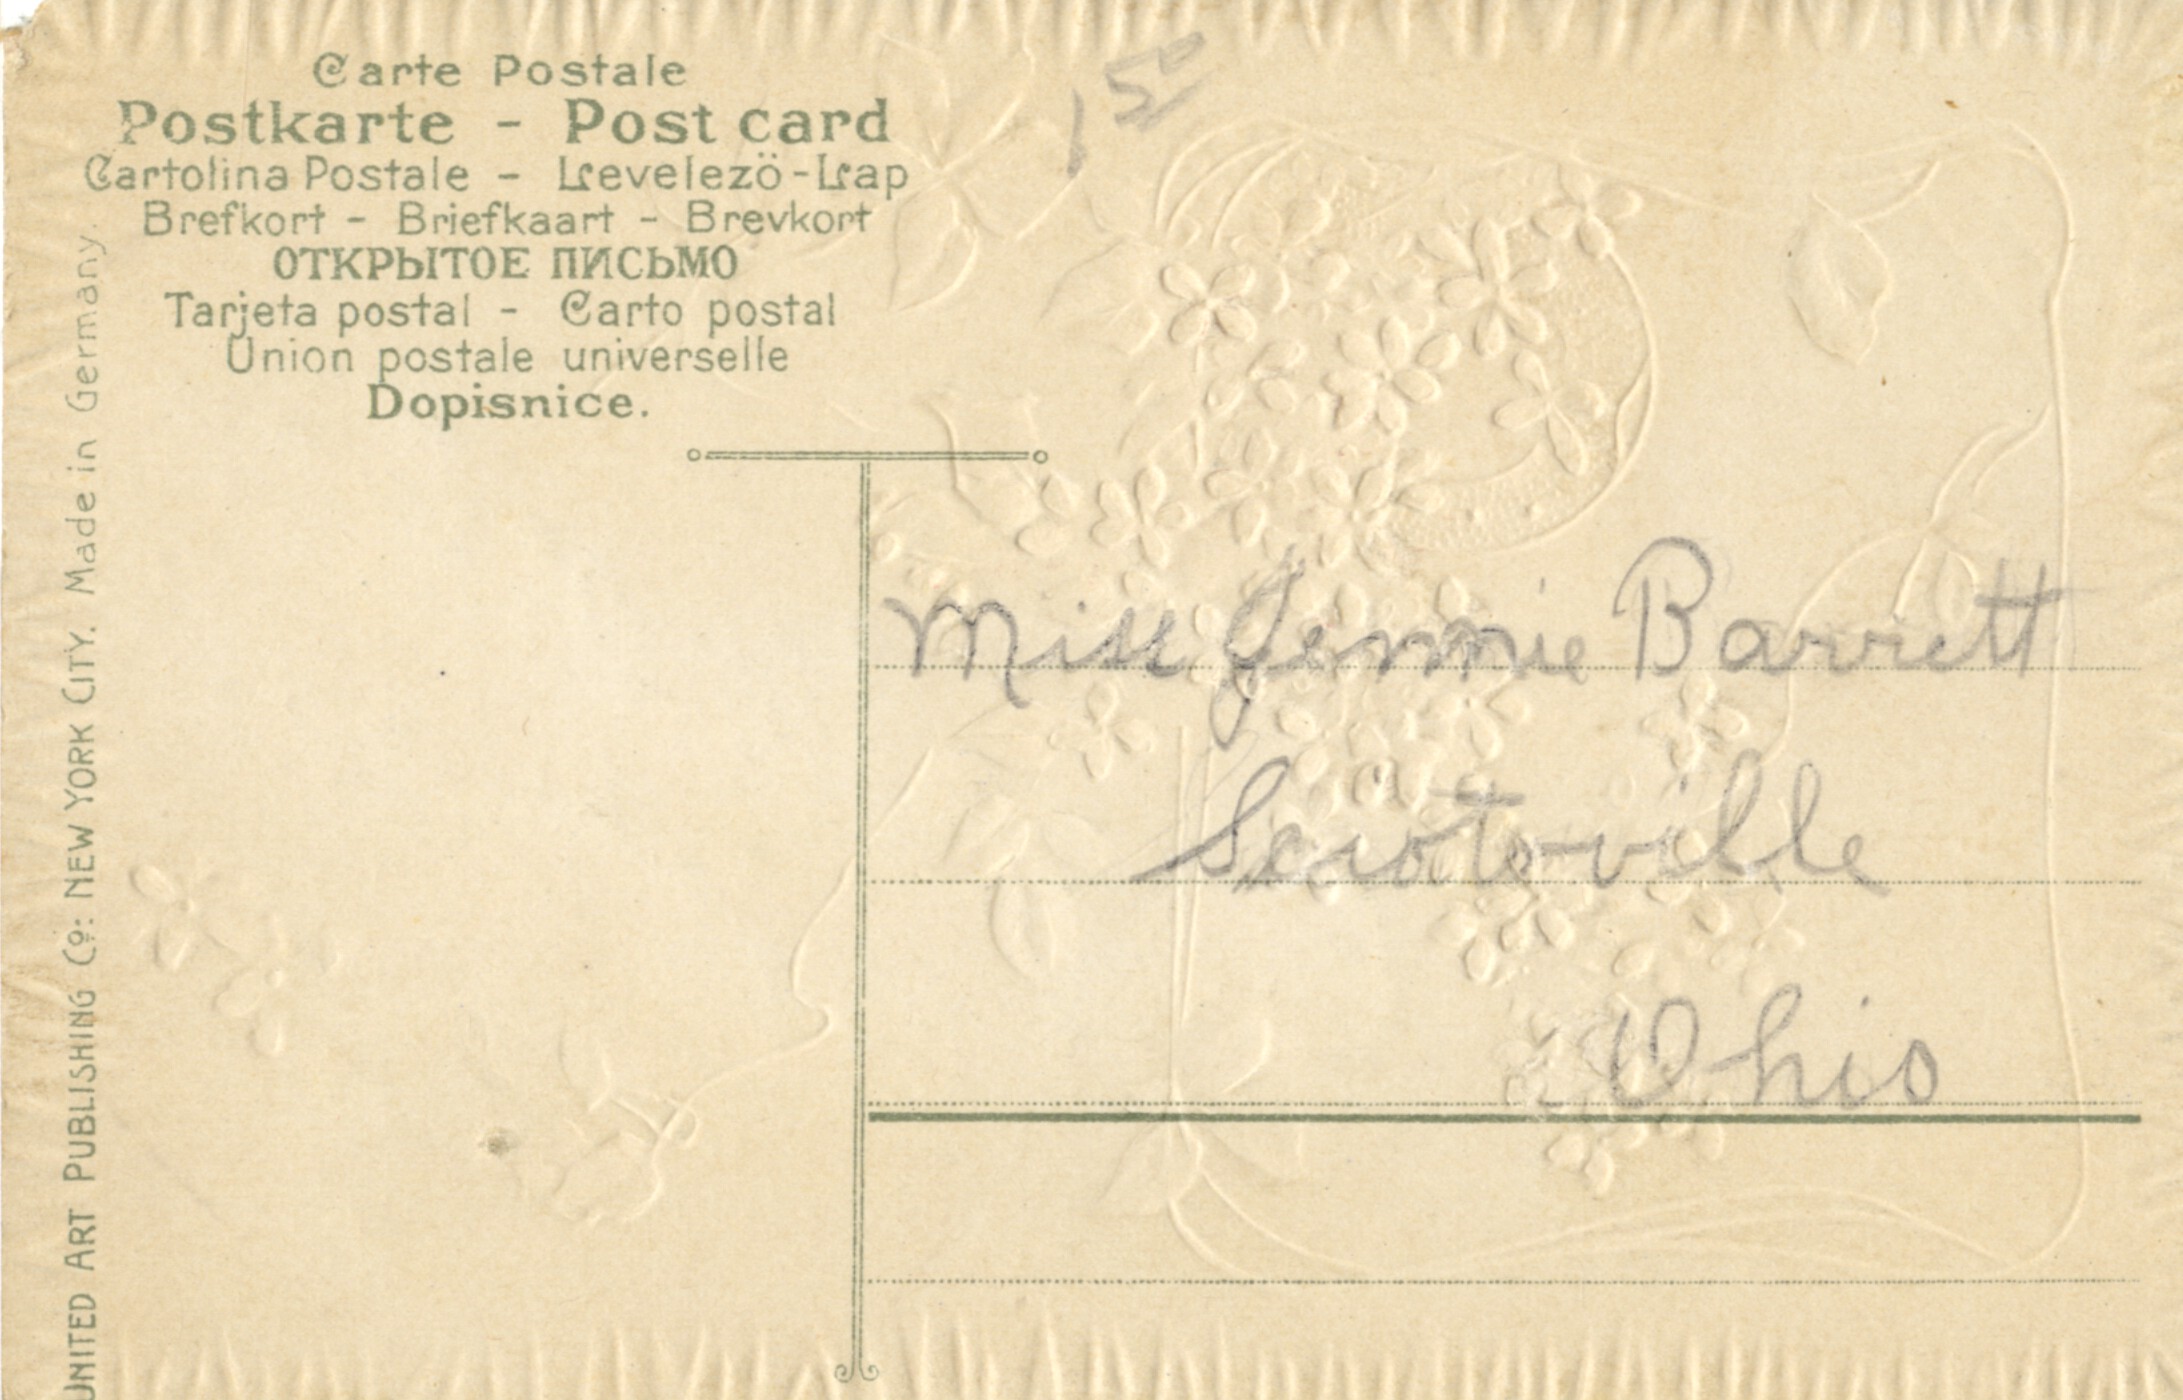 Carte Postale
Postkarte - Post card
Cartolina Postale - Levelezö-Lap
Brefkort - Briefkaart - Brevkort
ОТКРЫТОЕ ПИСЬМО
Tarjeta postal - Carto postal
Union postale universelle
Dopisnice.
1 50
Miss Jennie Barrett
Sciotoville
Ohio
UNITED ART PUBLISHING Co: NEW YORK CITY. Made in Germany.